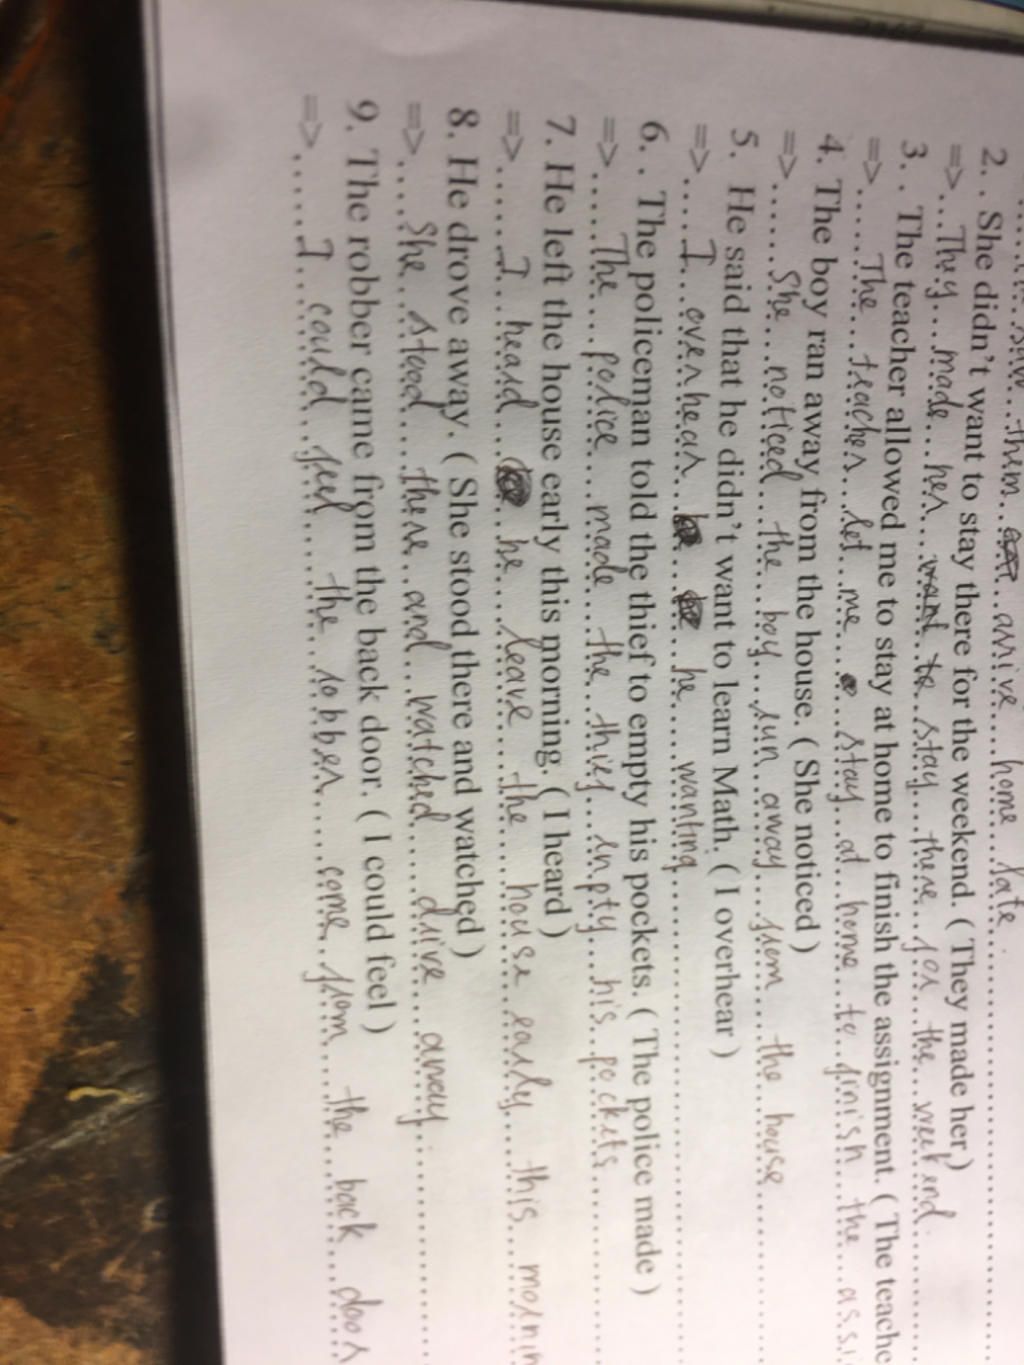 saw them arrive home late.
2. . She didn't want to stay there for the weekend. ( They made her )
=> They made her want to stay there for the weekend.
3. . The teacher allowed me to stay at home to finish the assignment. ( The teache
=> The teacher let me stay at home to finish the assi
4. The boy ran away from the house. ( She noticed )
=> She noticed the boy run away from the house
5. He said that he didn't want to learn Math. ( I overhear )
=> I overhear he wanting
6. . The policeman told the thief to empty his pockets. ( The police made )
=> The police made the thief enpty his pockets
7. He left the house early this morning. ( I heard )
=> I heard he leave the house early this mornin
8. He drove away. ( She stood there and watched )
=> She stood there and watched drive away
9. The robber came from the back door. ( I could feel )
=> I could feel the robber come from the back door